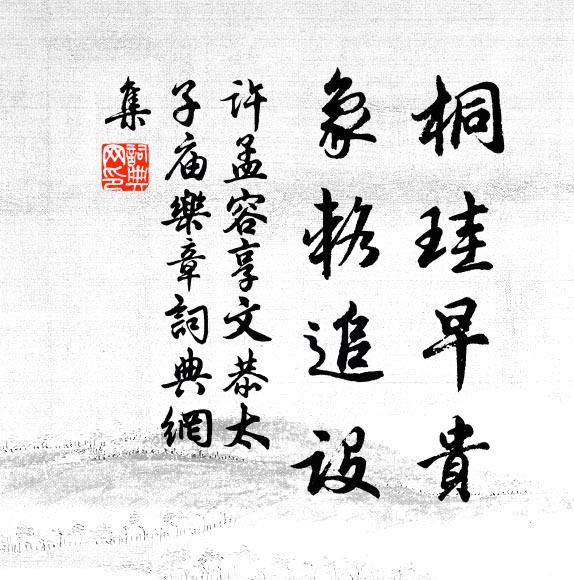 桐珪早貴
象輅追設
許孟容享文恭太
子庙樂章詞典網
集
詞典
网印